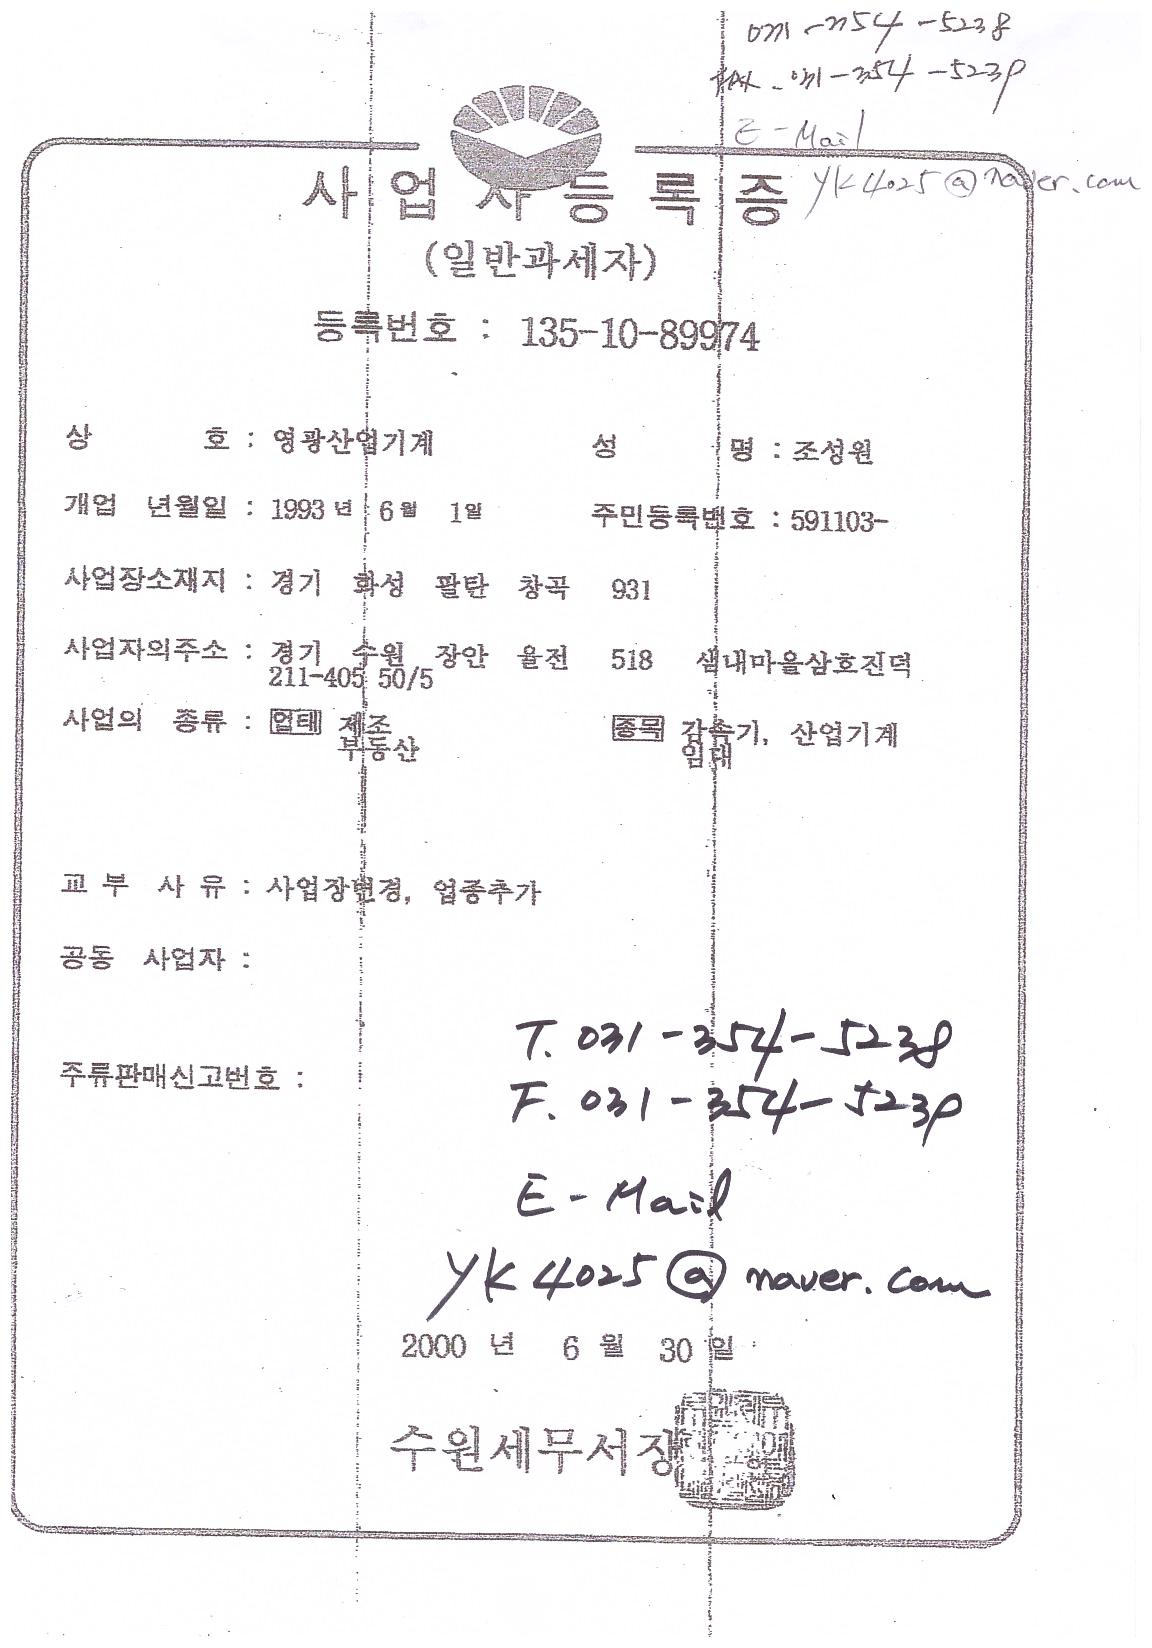 031-354-5238
FAX. 031-354-5239
E-Mail
yk4025@naver.com
사업자등록증
(일반과세자)
등록번호 : 135-10-89974
상 호 : 영광산업기계 성 명 : 조성원
개업 년월일 : 1993 년 6 월 1 일 주민등록번호 : 591103-
사업장소재지 : 경기 화성 팔탄 창곡 931
사업자의주소 : 경기 수원 장안 율전 518 샘내마을삼호진덕
211-405 50/5
사업의 종류 : 업태 제조 종목 감속기, 산업기계
부동산 임대
교 부 사 유 : 사업장변경, 업종추가
공동 사업자 :
T. 031-354-5238
주류판매신고번호 :
F. 031-354-5239
E-Mail
yk4025@naver.com
2000 년 6 월 30 일
수원세무서장